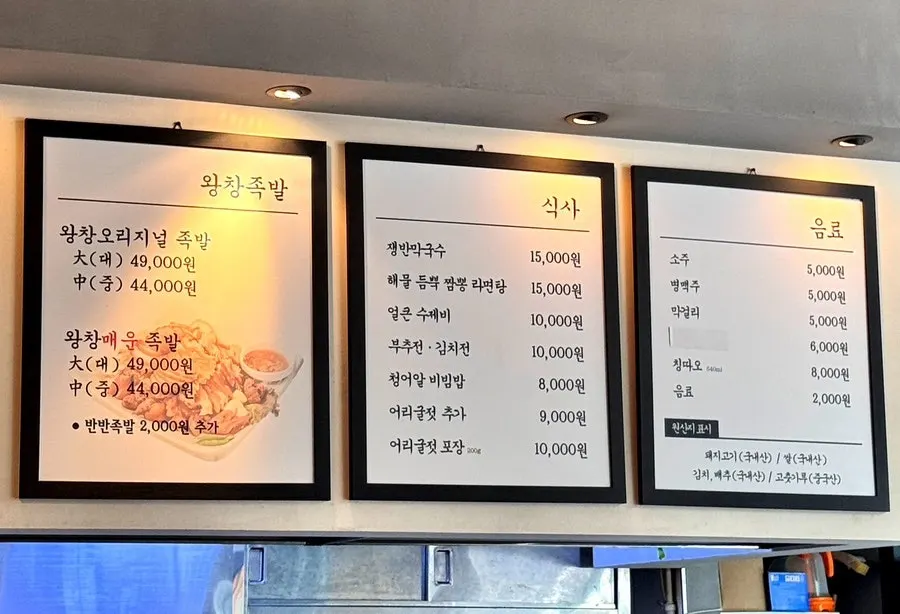 왕창족발
왕창오리지널 족발
大(대) 49,000원
中(중) 44,000원
왕창매운족발
大(대) 49,000원
中(중) 44,000원
• 반반족발 2,000원 추가
식사
쟁반막국수 15,000원
해물 듬뿍 짬뽕 라면탕 15,000원
얼큰 수제비 10,000원
부추전 · 김치전 10,000원
청어알 비빔밥 8,000원
어리굴젓 추가 9,000원
어리굴젓 포장 200g 10,000원
음료
소주 5,000원
병맥주 5,000원
막걸리 5,000원
6,000원
칭따오 640ml 8,000원
음료 2,000원
원산지 표시
돼지고기(국내산) / 쌀(국내산)
김치,배추(국내산) / 고춧가루(중국산)